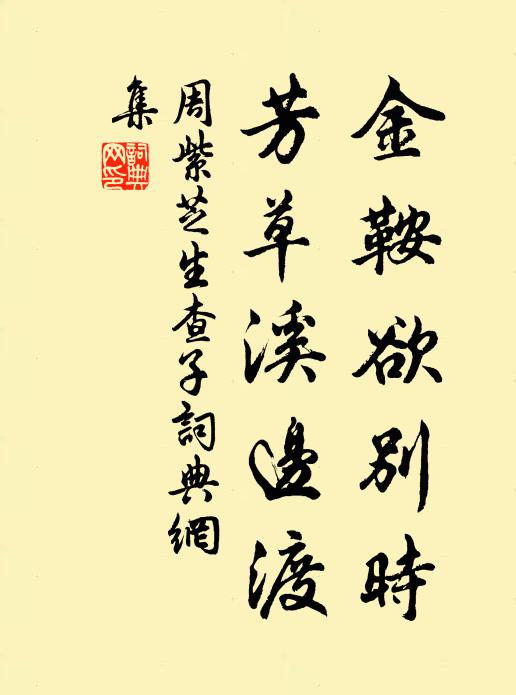 金鞍欲別時
芳草溪邊渡
周紫芝生查子詞典網
集
詞典網印